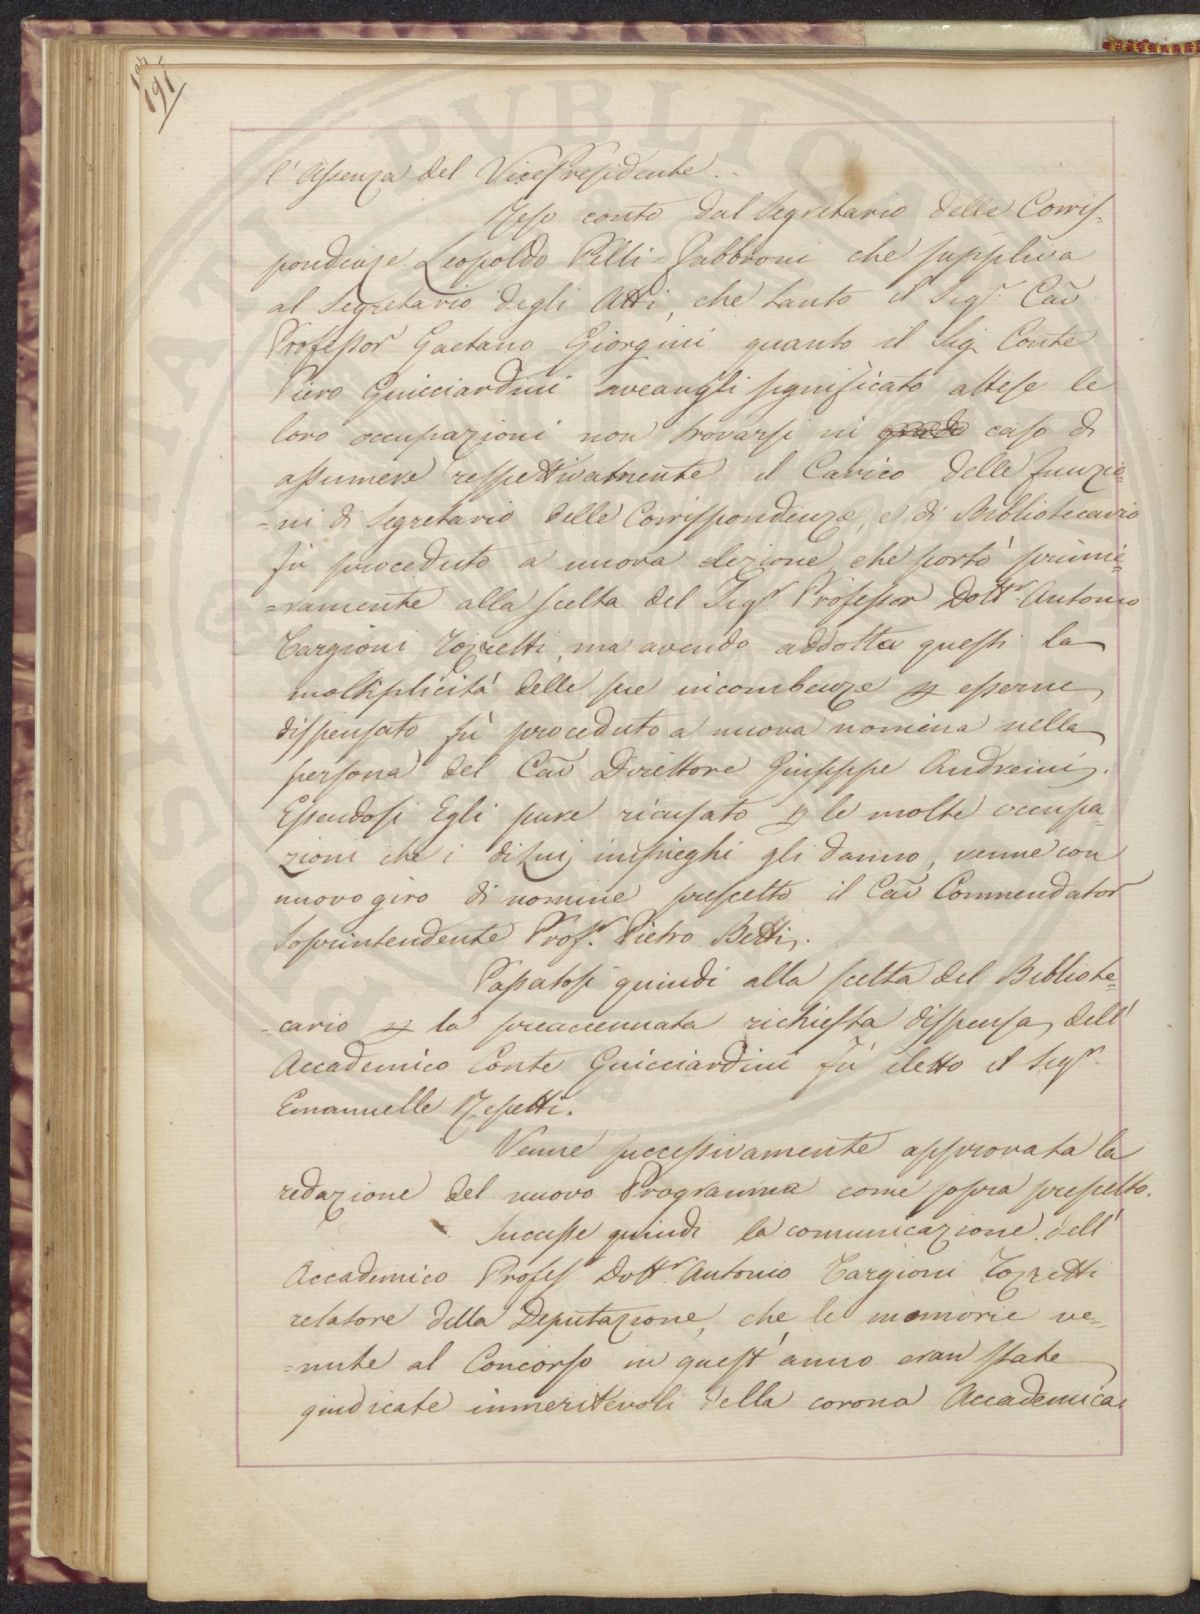 191
l'Assenza del VicePresidente.
Reso conto dal Segretario delle Corris-
pondenze Leopoldo Pelli-Fabbroni che suppliva
al Segretario degli Atti, che tanto il Sigr. Cav
Professor Gaetano Giorgini quanto il Sig. Conte
Piero Guicciardini aveangli significato attese le
loro occupazioni non trovarsi in caso di
assumere respettivamente il Carico delle Funzio=
=ni di Segretario delle Corrispondenze, e di Bibliotecario
fù proceduto a nuova elezione, che portò primie=
=ramente alla scelta del Sigr. Professor Dottr. Antonio
Targioni Tozzetti, ma avendo addotta questi la
moltiplicità delle sue incombenze p esserne
dispensato fù proceduto a nuova nomina nella
persona del Cav Direttore Giuseppe Andreini.
Essendosi Egli pure ricusato p le molte occupa=
zioni che i di Lui impieghi gli danno, venne con
nuovo giro di nomine prescelto il Cav Commendator
Soprintendente Profr. Pietro Betti.
Passatosi quindi alla scelta del Bibliote=
=cario p la preaccennata richiesta dispensa dell'
Accademico Conte Guicciardini fù eletto il Sigr.
Emanuelle Repetti.
Venne successivamente approvata la
redazione del nuovo Programma come sopra prescelto.
Successe quindi la comunicazione dell'
Accademico Profess Dottr. Antonio Targioni Tozzetti
relatore della Deputazione, che le memorie ve=
=nute al Concorso in quest'anno eran state
giudicate immeritevoli della corona Accademica